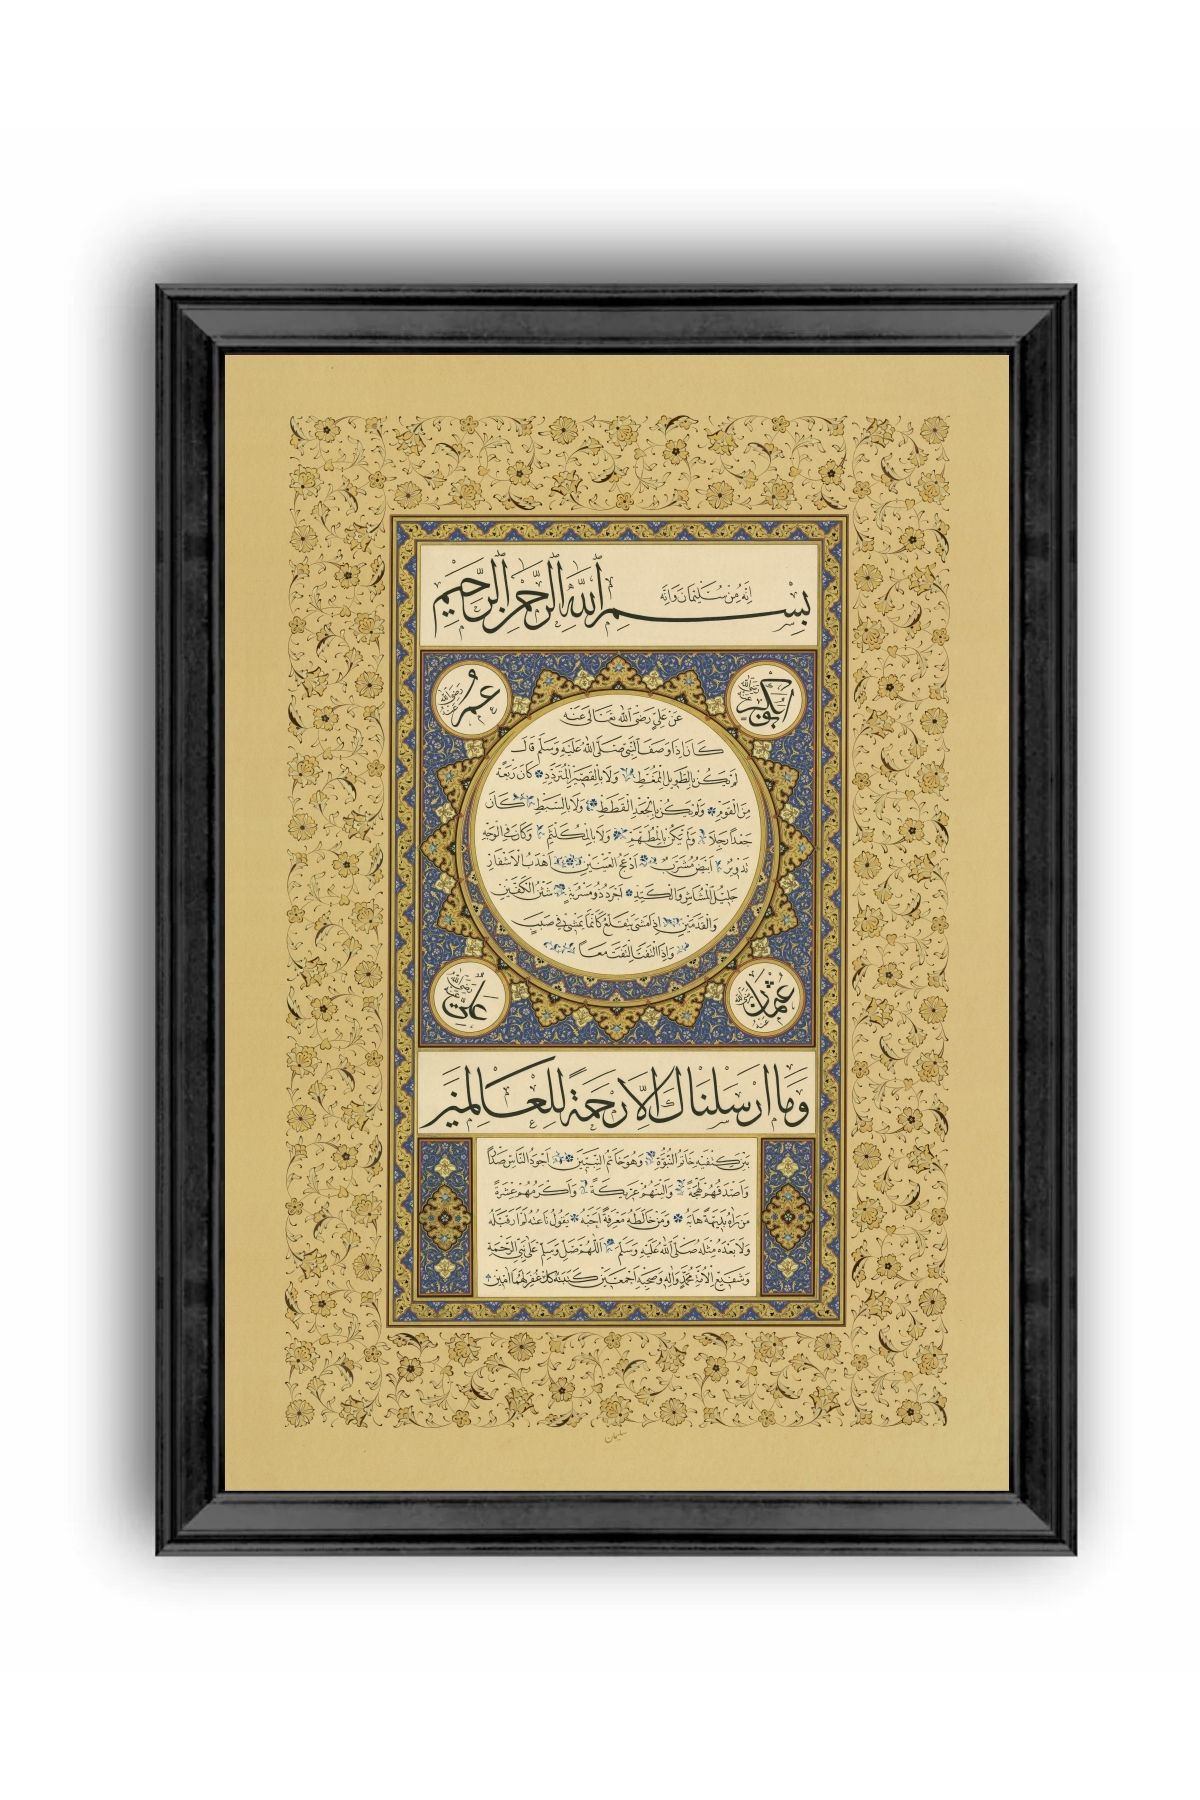 إنه من سليمان وإنه
بسم الله الرحمن الرحيم
أبو بكر رضي الله عنه
عمر رضي الله عنه
عن علي رضي الله تعالى عنه
كان إذا وصف النبي صلى الله عليه وسلم قال
لم يكن بالطويل الممغط ولا بالقصير المتردد كان ربعة
من القوم ولم يكن بالجعد القطط ولا بالسبط كان
جعدا رجلا ولم يكن بالمطهم ولا بالمكلثم وكان في الوجه
تدوير أبيض مشرب أدعج العينين أهدب الأشفار
جليل المشاش والكتد أجرد ذو مسربة شثن الكفين
والقدمين إذا مشى يتقلع كأنما يمشي في صبب
وإذا التفت التفت معا
عثمان رضي الله عنه
علي رضي الله عنه
وما أرسلناك إلا رحمة للعالمين
بين كتفيه خاتم النبوة وهو خاتم النبيين أجود الناس صدرا
وأصدقهم لهجة وألينهم عريكة وأكرمهم عشرة
من رآه بديهة هابه ومن خالطه معرفة أحبه يقول ناعته لم أر قبله
ولا بعده مثله صلى الله عليه وسلم اللهم صل وسلم على نبي الرحمة
وشفيع الأمة محمد وآله وصحبه أجمعين كتبه غفر لهما آمين
سليمان